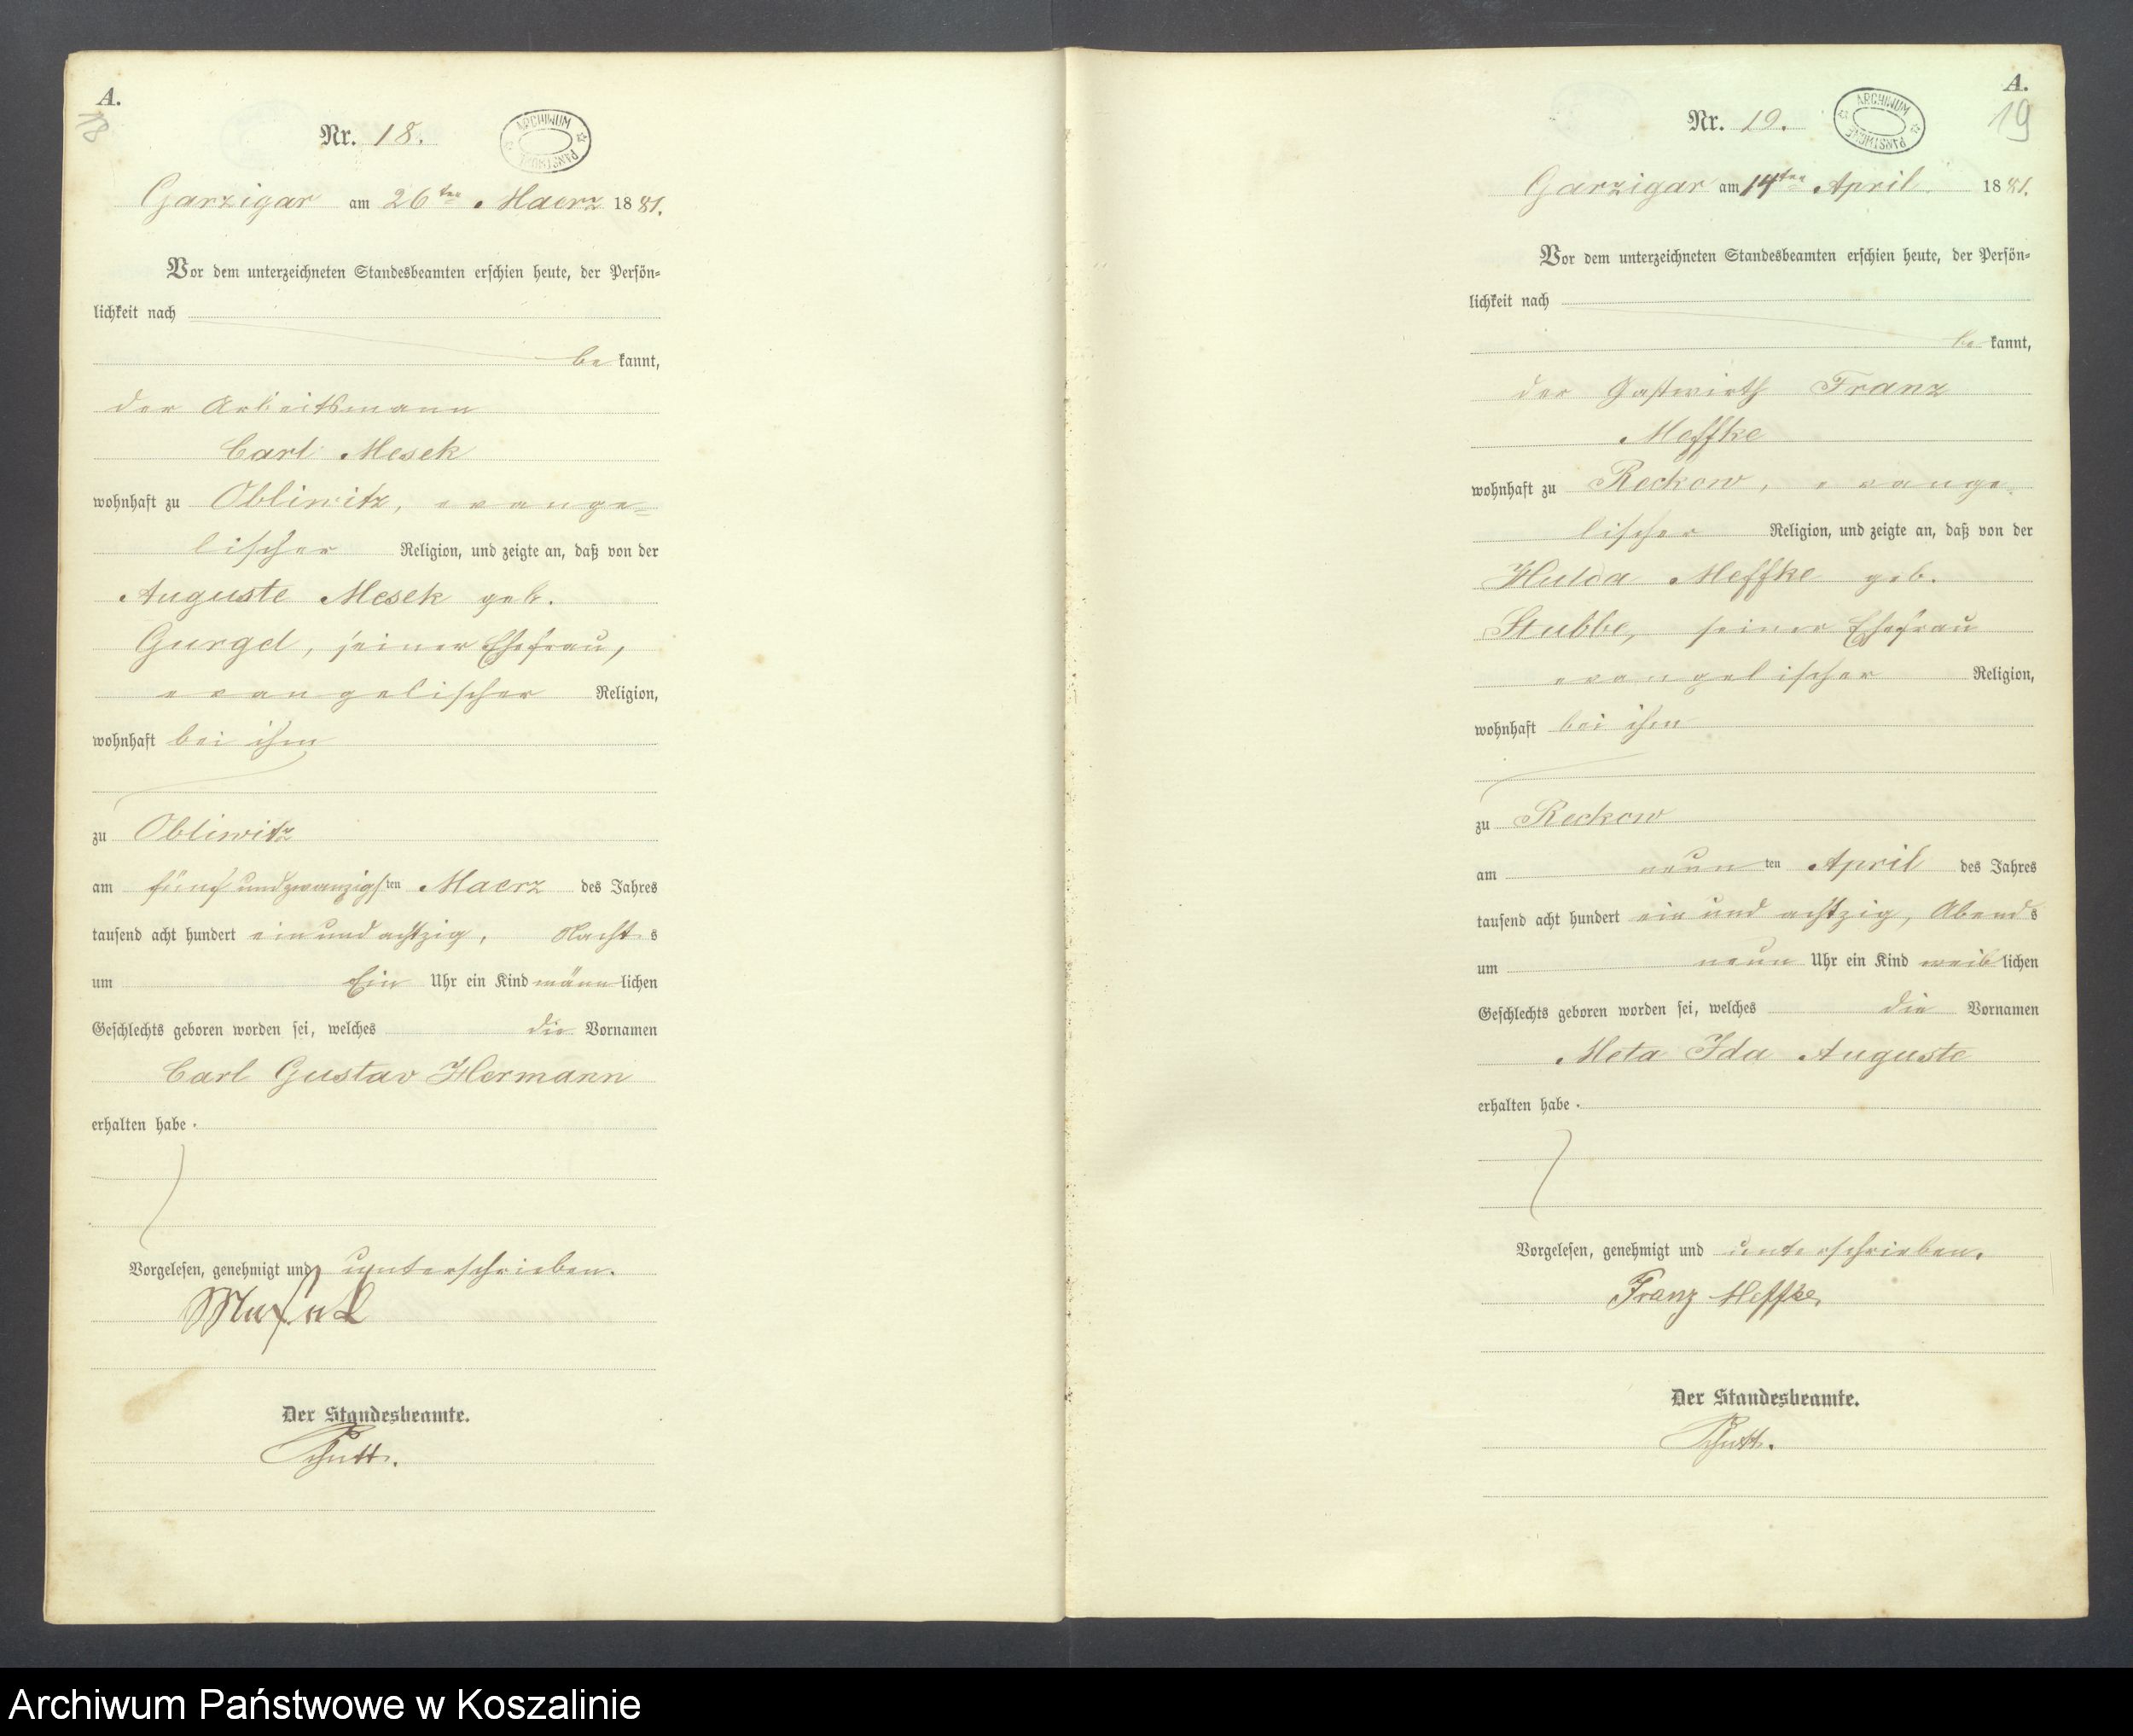 A.
18
Nr. 18.
ARCHIWUM PAŃSTWOWE
Garzigar am 26ten Maerz 1881.
Vor dem unterzeichneten Standesbeamten erschien heute, der Persön=
lichkeit nach
be kannt,
der Arbeitsmann
Carl Mesek
wohnhaft zu Obliwitz, evange=
lischer Religion, und zeigte an, daß von der
Auguste Mesek geb.
Gurgel, seiner Ehefrau,
evangelischer Religion,
wohnhaft bei ihm
zu Obliwitz
am fünf und zwanzigsten Maerz des Jahres
tausend acht hundert ein und achtzig, Nachts
um Ein Uhr ein Kind männlichen
Geschlechts geboren worden sei, welches die Vornamen
Carl Gustav Hermann
erhalten habe.
Vorgelesen, genehmigt und unterschrieben.
Der Standesbeamte.
A.
19
Nr. 19.
ARCHIWUM PAŃSTWOWE
Garzigar am 14ten April 1881.
Vor dem unterzeichneten Standesbeamten erschien heute, der Persön=
lichkeit nach
be kannt,
der Gastwirth Franz
Meffke
wohnhaft zu Reckow, evange=
lischer Religion, und zeigte an, daß von der
Hulda Meffke geb.
Stubbe, seiner Ehefrau
evangelischer Religion,
wohnhaft bei ihm
zu Reckow
am neun ten April des Jahres
tausend acht hundert ein und achtzig, Abends
um neun Uhr ein Kind weiblichen
Geschlechts geboren worden sei, welches die Vornamen
Meta Ida Auguste
erhalten habe.
Vorgelesen, genehmigt und unterschrieben.
Franz Meffke,
Der Standesbeamte.
Archiwum Państwowe w Koszalinie